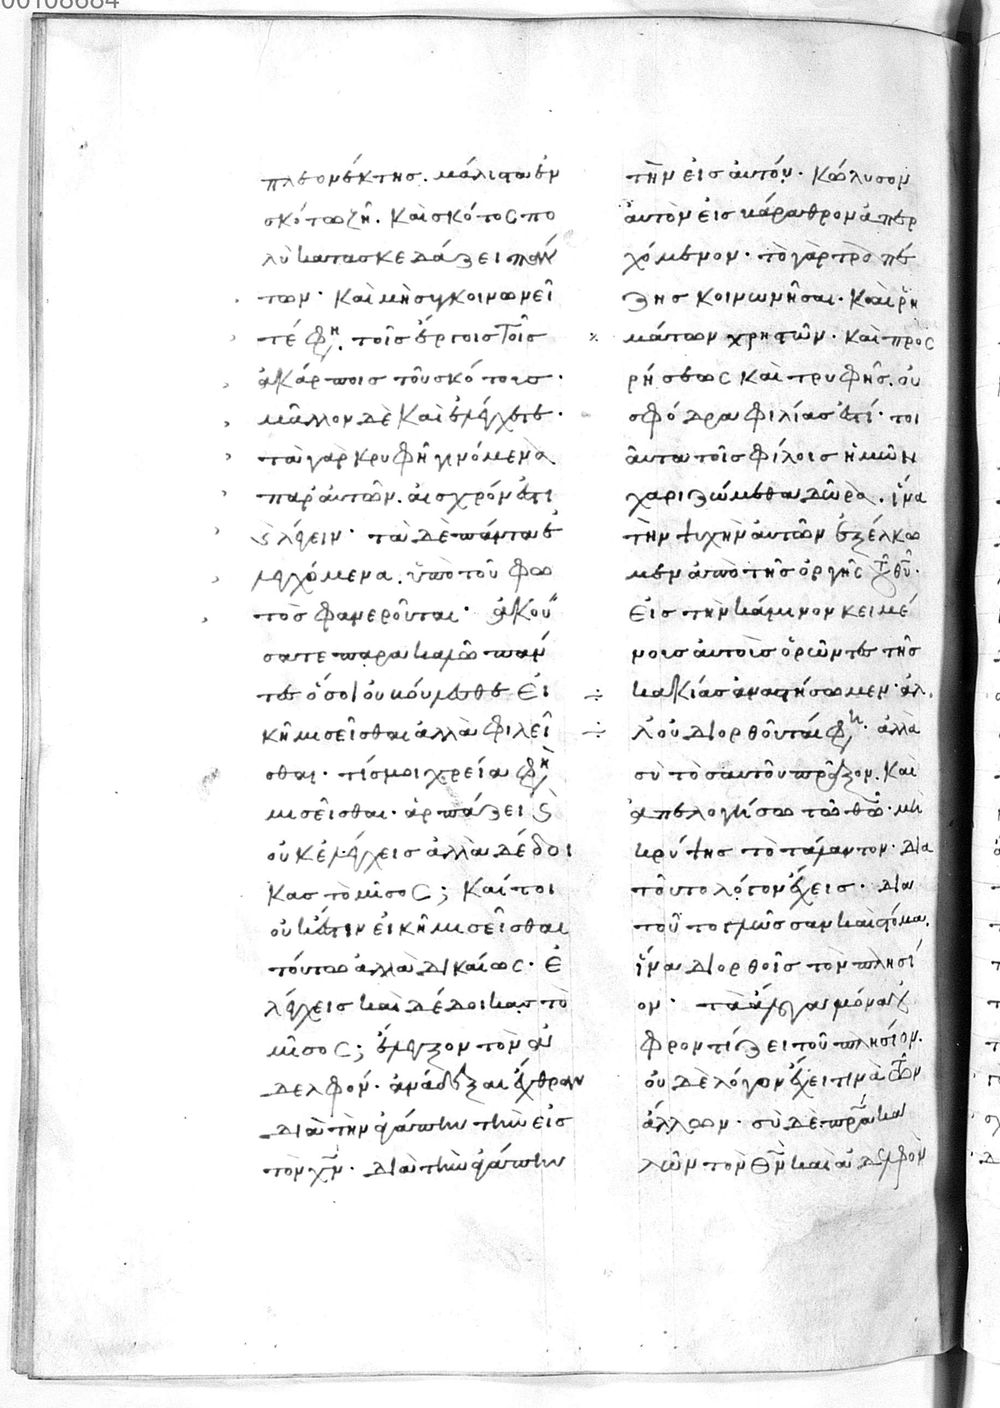 00108684
πλεονέκτης. μάλιστα ἐν
σκότω ζῆ. Καὶ σκότος πο
λὺ κατασκεδάζει πάν
των· Καὶ μὴ συγκοινωνεῖ
τέ φη. τοῖς ἔργοις τοῖς
ἀκάρποις τοῦ σκότους·
μᾶλλον δὲ Καὶ ἐλέγχετε·
τὰ γὰρ κρυφῆ γινόμενα
παρ' αὐτῶν. αἰσχρόν ἐστι
ς λέγειν· τὰ δὲ πάντα ἐ
λεγχόμενα. ὑπὸ τοῦ φω
τὸς φανεροῦται· ἀκού
σατε παρακαλῶ πάν
τες ὅσοι οὐκ οὔμεθε Εἰ
κῆ μισεῖσθαι ἀλλὰ φιλεῖ
σθαι· τίς μοι χρεία φη
μισεῖσθαι· ἁρπάζει ς
οὐκ ἐλέγχεις ἀλλὰ δέδοι
κας τὸ μῖσος; Καίτοι
οὐκ ἔστιν εἰκῆ μισεῖσθαι
τούτω ἀλλὰ δικαίως· Ἐ
λέγχεις καὶ δέδοικας τὸ
μῖσος; ἔλεγξον τὸν ἀ
δελφόν. ἀνάδεξαι ἔχθραν
διὰ τὴν ἀγάπην τὴν εἰς
τὸν χν. διὰ τὴν ἀγάπην
τὴν εἰς αὐτόν. Κώλυσον
αὐτὸν εἰς βάραθρον ἀπερ
χόμενον· τὸ γὰρ τραπέ
ζης κοινωνῆσαι. Καὶ ῥη
μάτων χρηστῶν. Καὶ προς
ρήσεως Καὶ τρυφῆς. οὐ
σφόδρα φιλίας ἐστί. τοι
αῦτα τοῖς φίλοις ἡμῶν
χαριζώμεθα δῶρα. ἵνα
τὴν ψυχὴν αὐτῶν ἐξέλκω
μεν ἀπὸ τῆς ὀργῆς τ θυ·
Εἰς τὴν κάμινον κειμέ
νους αὐτοὺς ὁρῶντες τῆς
κακίας ἀναστήσωμεν· ἀλ
λ' οὐ διορθοῦται φη· ἀλλὰ
σὺ τὸ σαυτοῦ πρᾶξον. Καὶ
ἀπελογήσω τῶ θω· μὴ
κρύψης τὸ τάλαντον. διὰ
τοῦτο λόγον ἔχεις. διὰ
τοῦτο γλῶσσαν καὶ στόμα.
ἵνα διορθοῖς τὸν πλησί
ον· τὰ ἄλογα μόνα οὐ
φροντίζει τοῦ πλησίον.
οὐδὲ λόγον ἔχει τινὰ τῶν
ἄλλων. σὺ δὲ πρα κα
λῶν τὸν Θν καὶ ἀδελφὸν